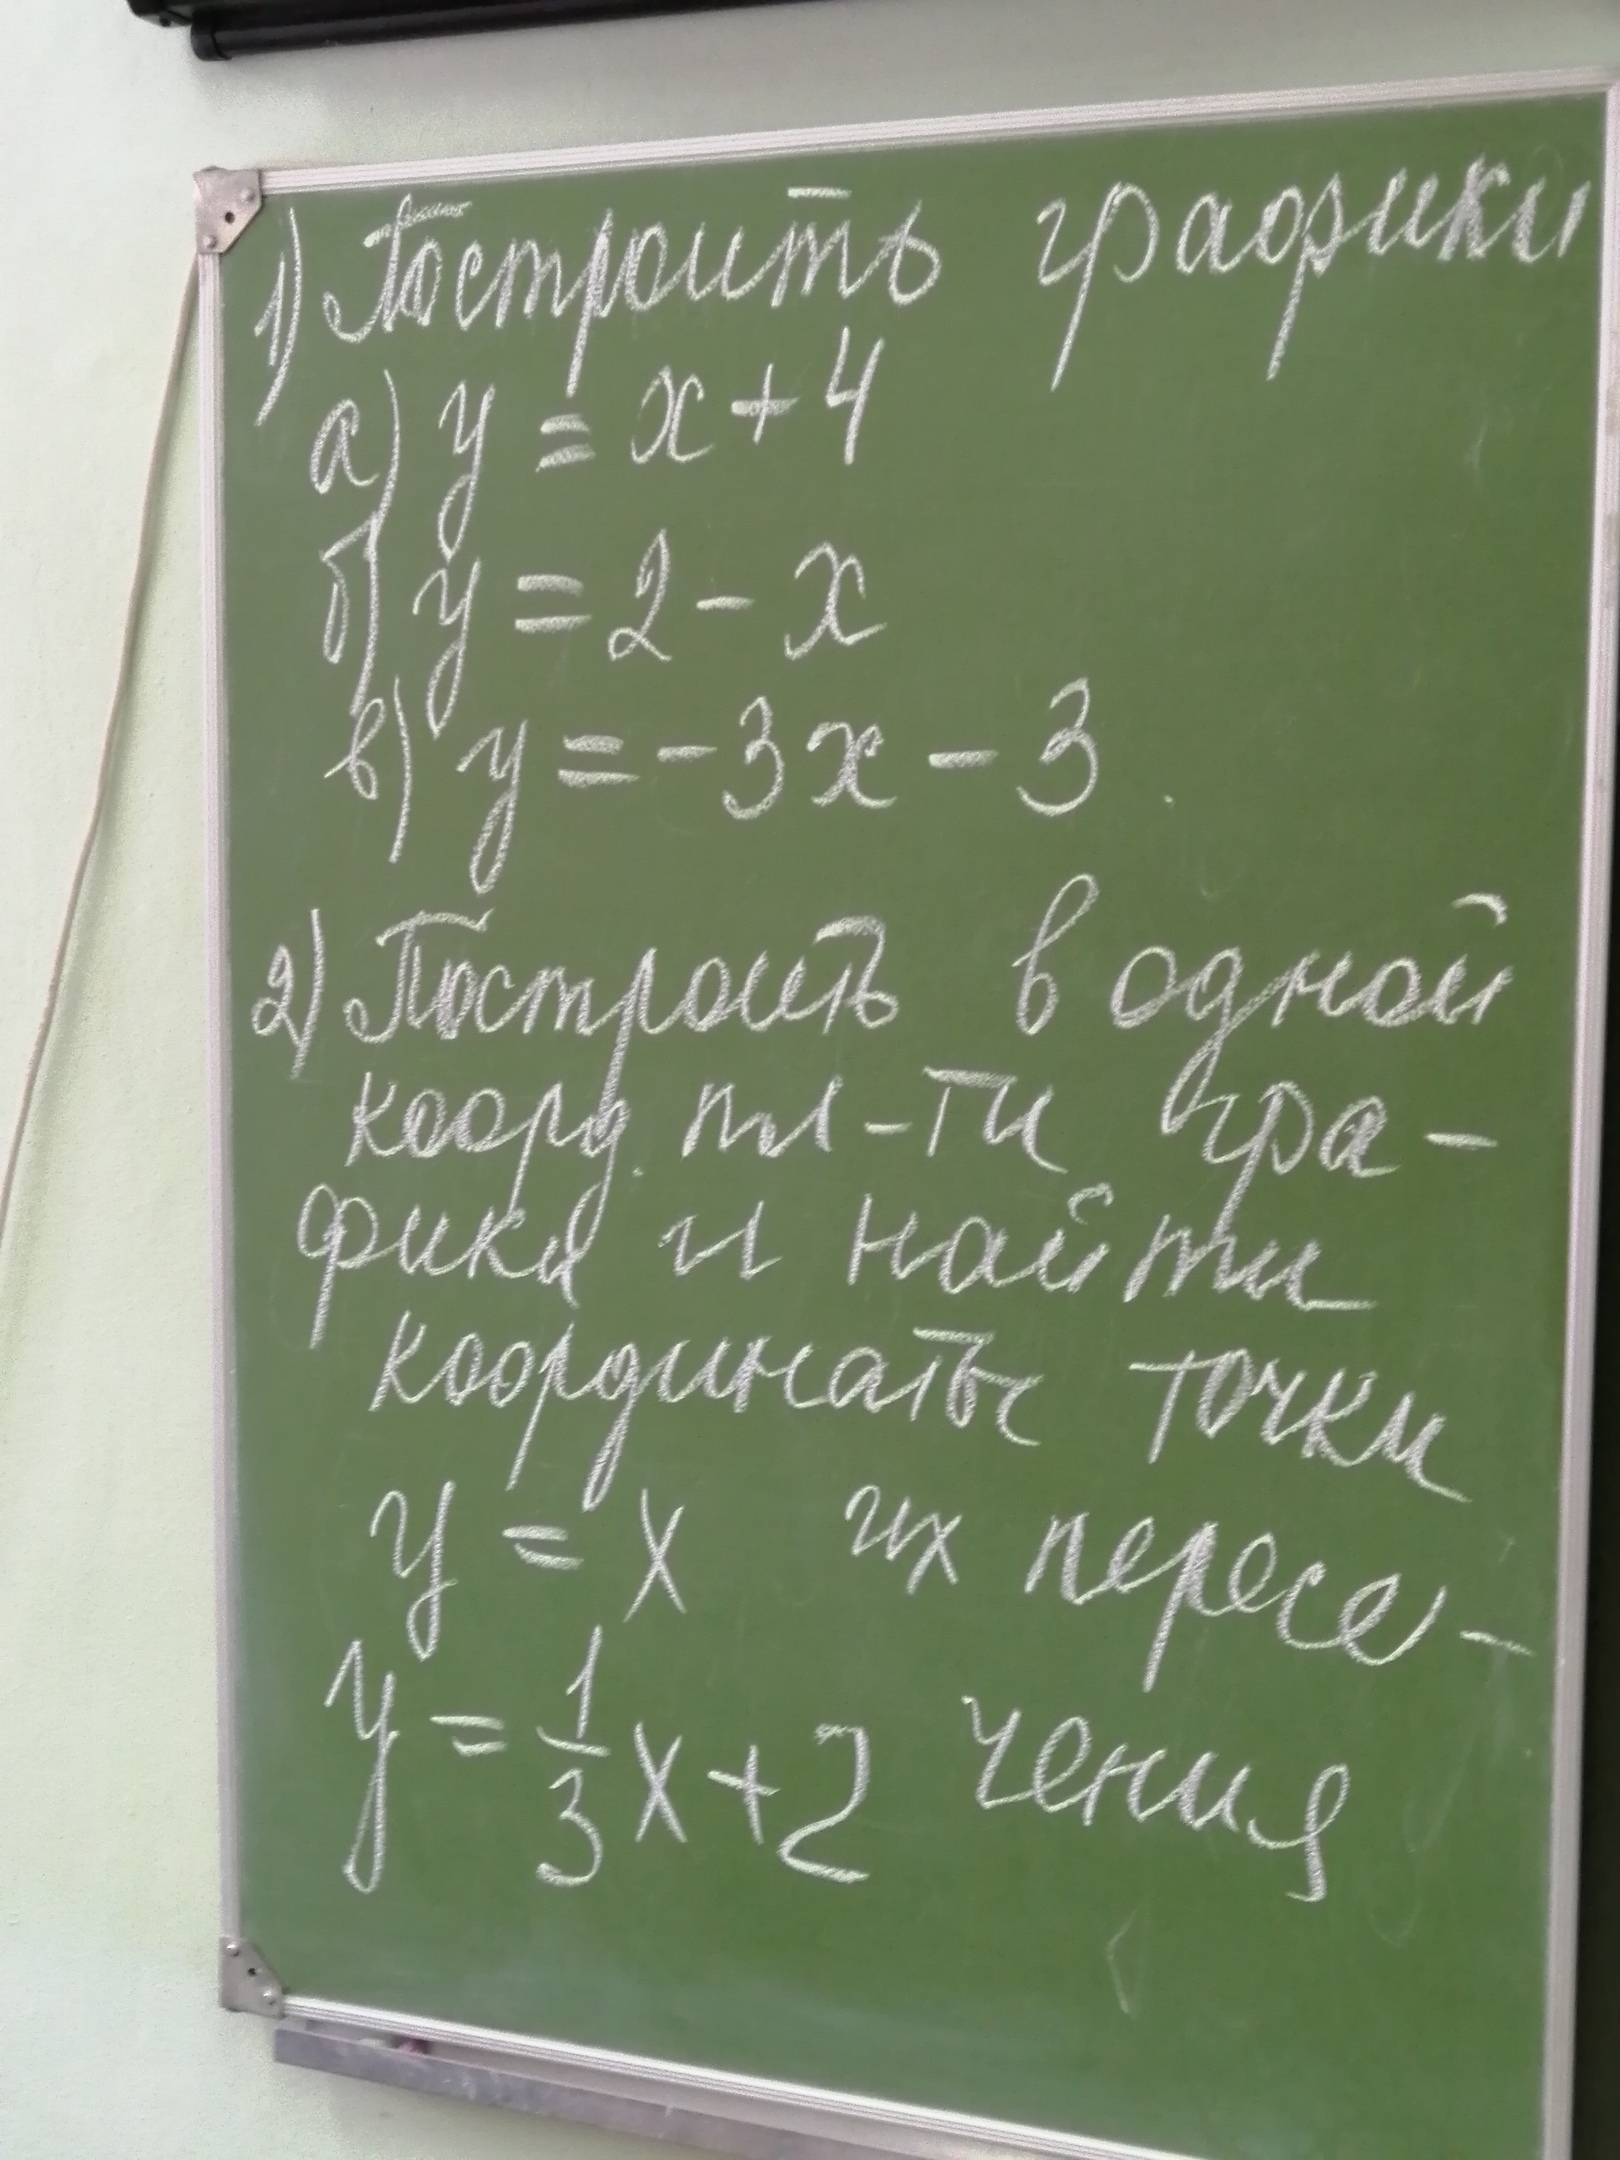 1) Построить графики
а) y = x + 4
б) y = 2 - x
в) y = -3x - 3
2) Построить в одной
коорд. пл-ти гра-
фики и найти
координаты точки
y = x их пересе-
y = 1/3 x + 2 чения